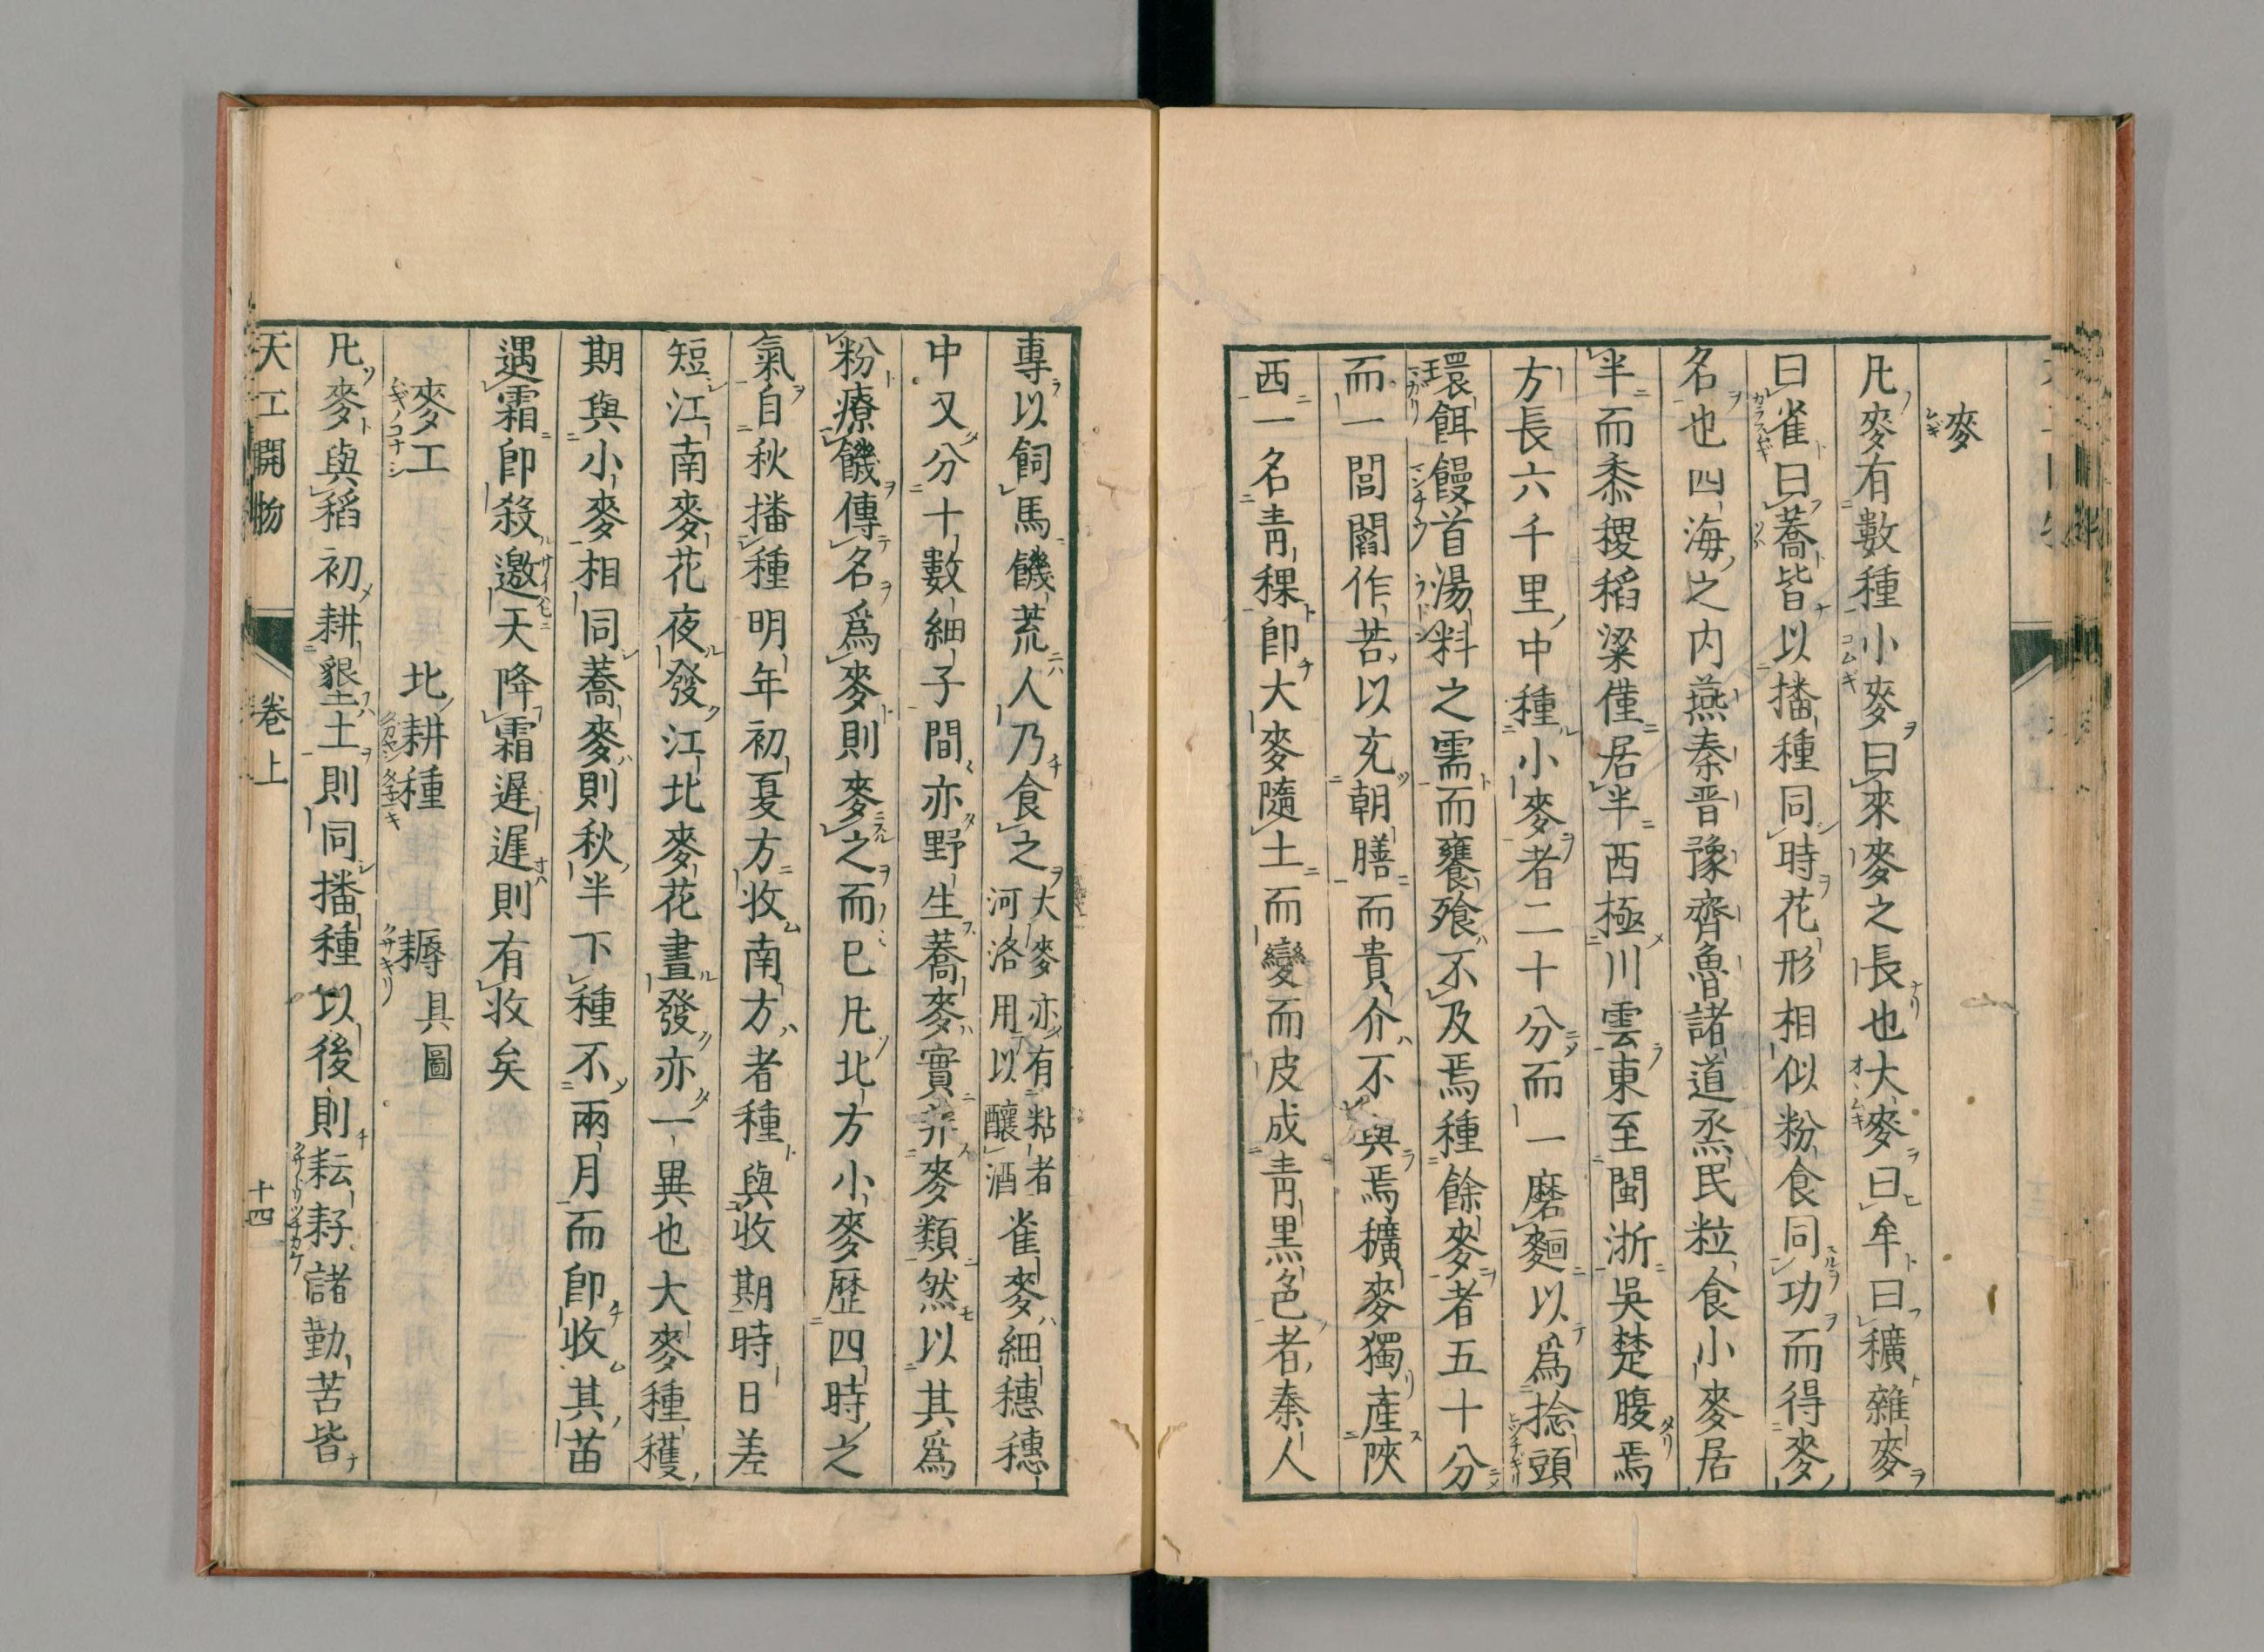 麥
凡麥有數種小麥曰來麥之長也大麥曰牟曰穬雜麥
曰雀曰蕎皆以播種同時花形相似粉食同功而得麥
名也四海之内燕秦晋豫齊魯諸道烝民粒食小麥居
半而黍稷稻粱僅居半西極川雲東至閩浙吳楚腹焉
方長六千里中種小麥者二十分而一磨麵以爲捻頭
環餌饅首湯料之需而饔飧不及焉種餘麥者五十分
而一閭閻作苦以充朝膳而貴介不與焉穬麥獨產陝
西一名靑稞卽大麥隨土而變而皮成靑黑色者秦人
專以飼馬饑荒人乃食之
大麥亦有粘者
河洛用以釀酒
雀麥細穗穗
中又分十數細子間亦野生蕎麥實非麥類然以其爲
粉療饑傳名爲麥則麥之而已凡北方小麥歷四時之
氣自秋播種明年初夏方收南方者種與收期時日差
短江南麥花夜發江北麥花晝發亦一異也大麥種穫
期與小麥相同蕎麥則秋半下種不兩月而卽收其苗
遇霜卽殺邀天降霜遲遲則有收矣
麥工　北耕種　耨　具圖
凡麥與稻初耕墾土則同播種以後則耘耔諸勤苦皆
天工開物　卷上　十四